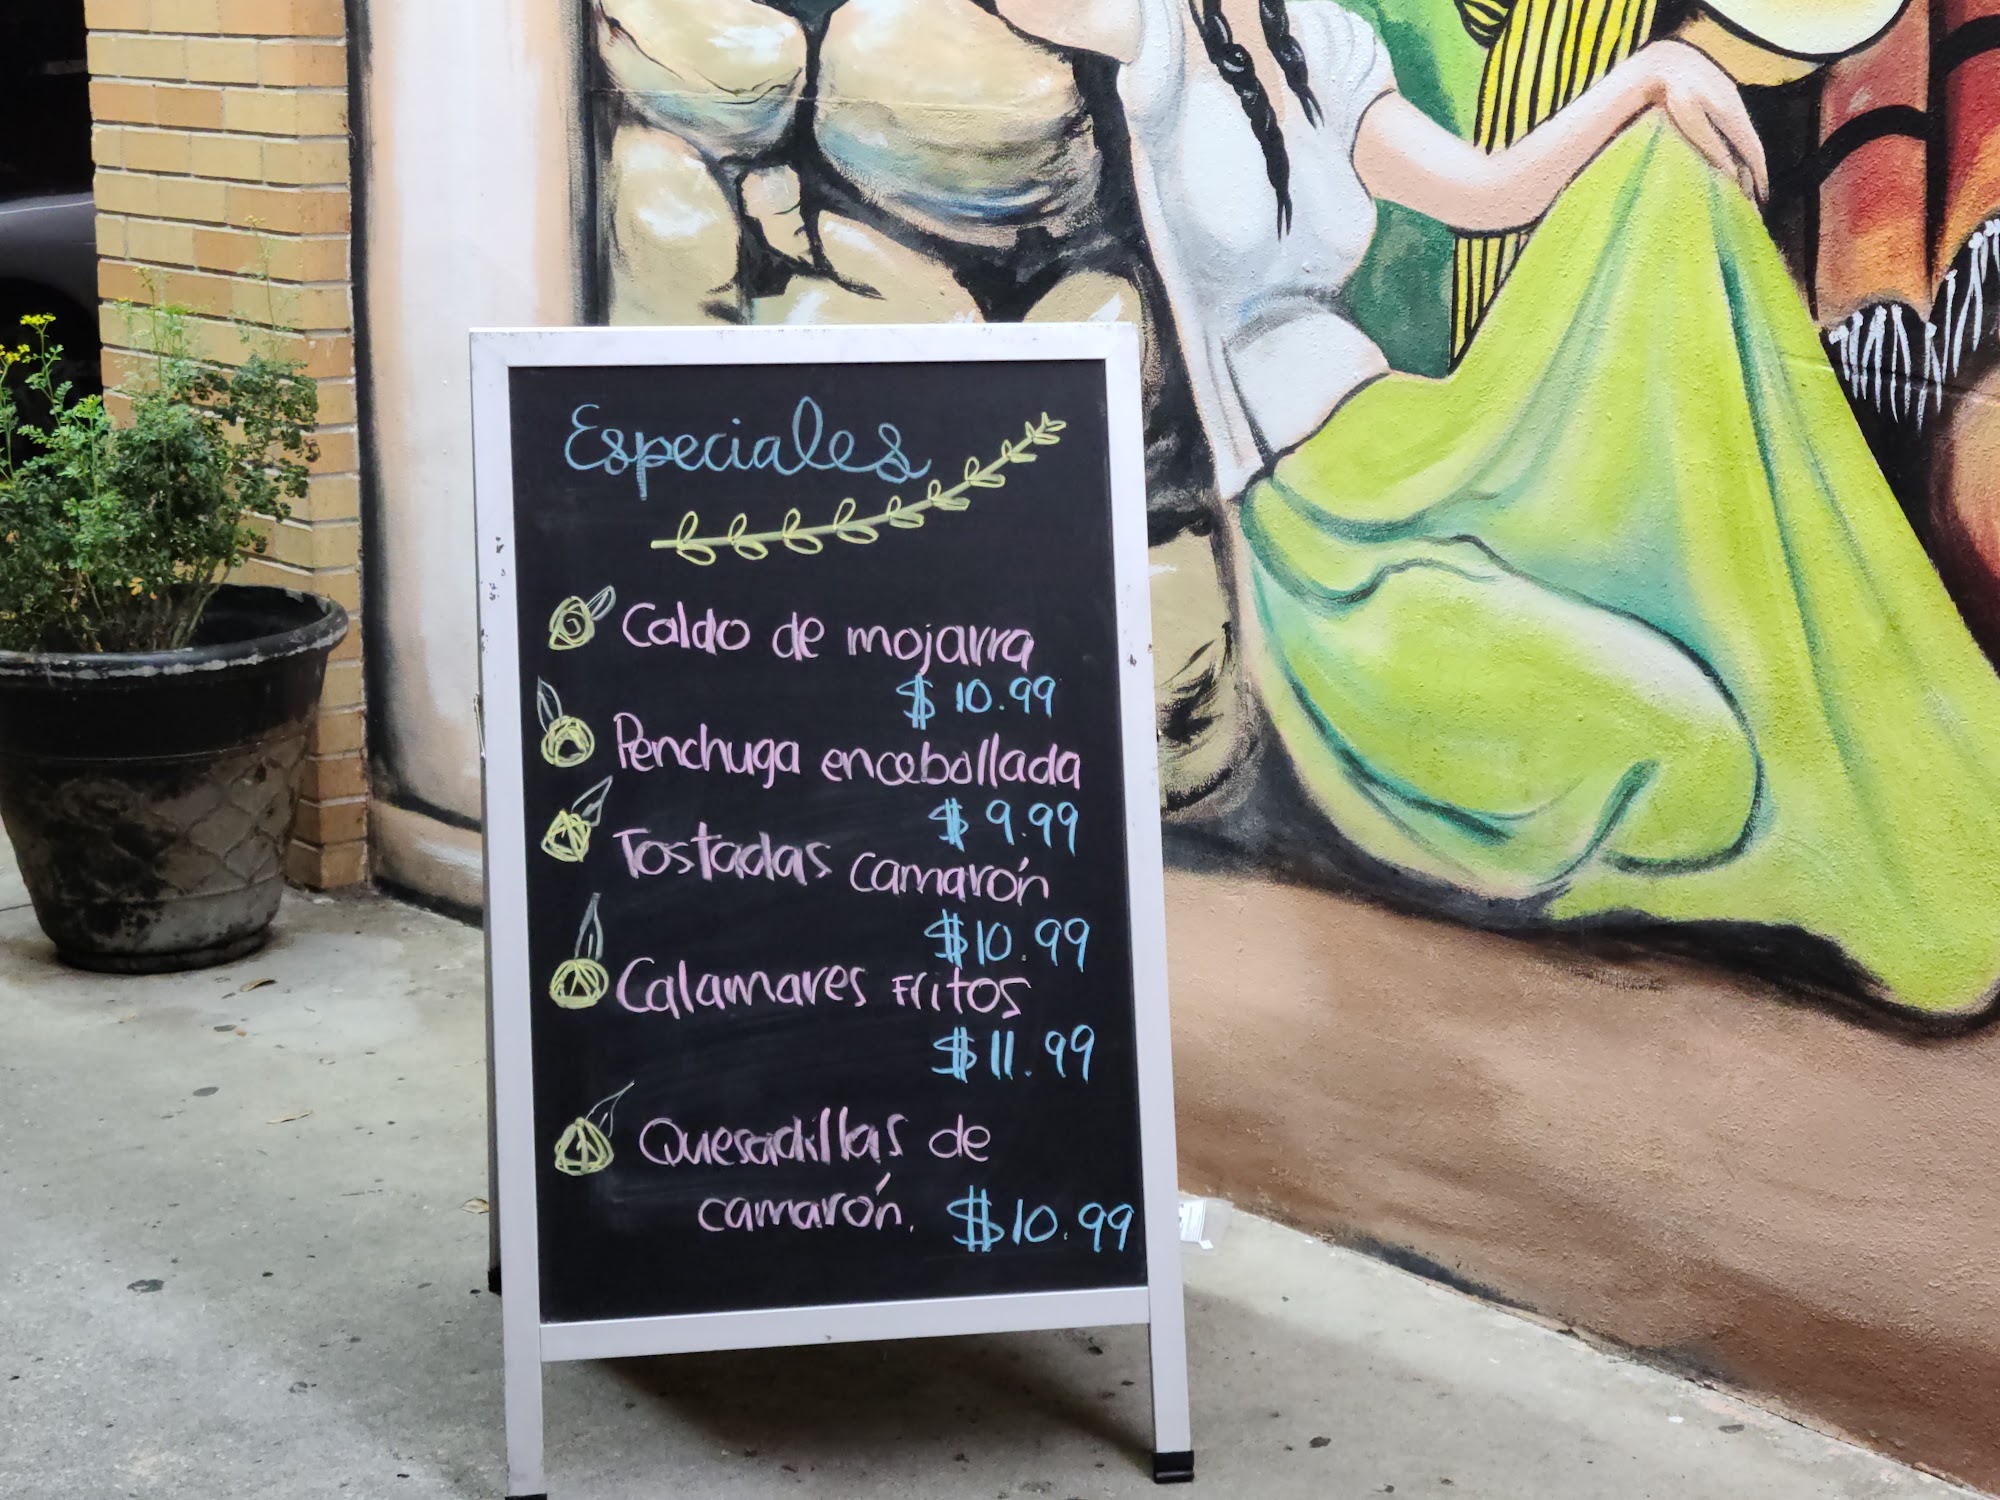 Especiales
Caldo de mojarra
$ 10.99
Penchuga encebollada
$ 9.99
Tostadas camarón
$10.99
Calamares Fritos
$11.99
Quesadillas de
camarón. $10.99